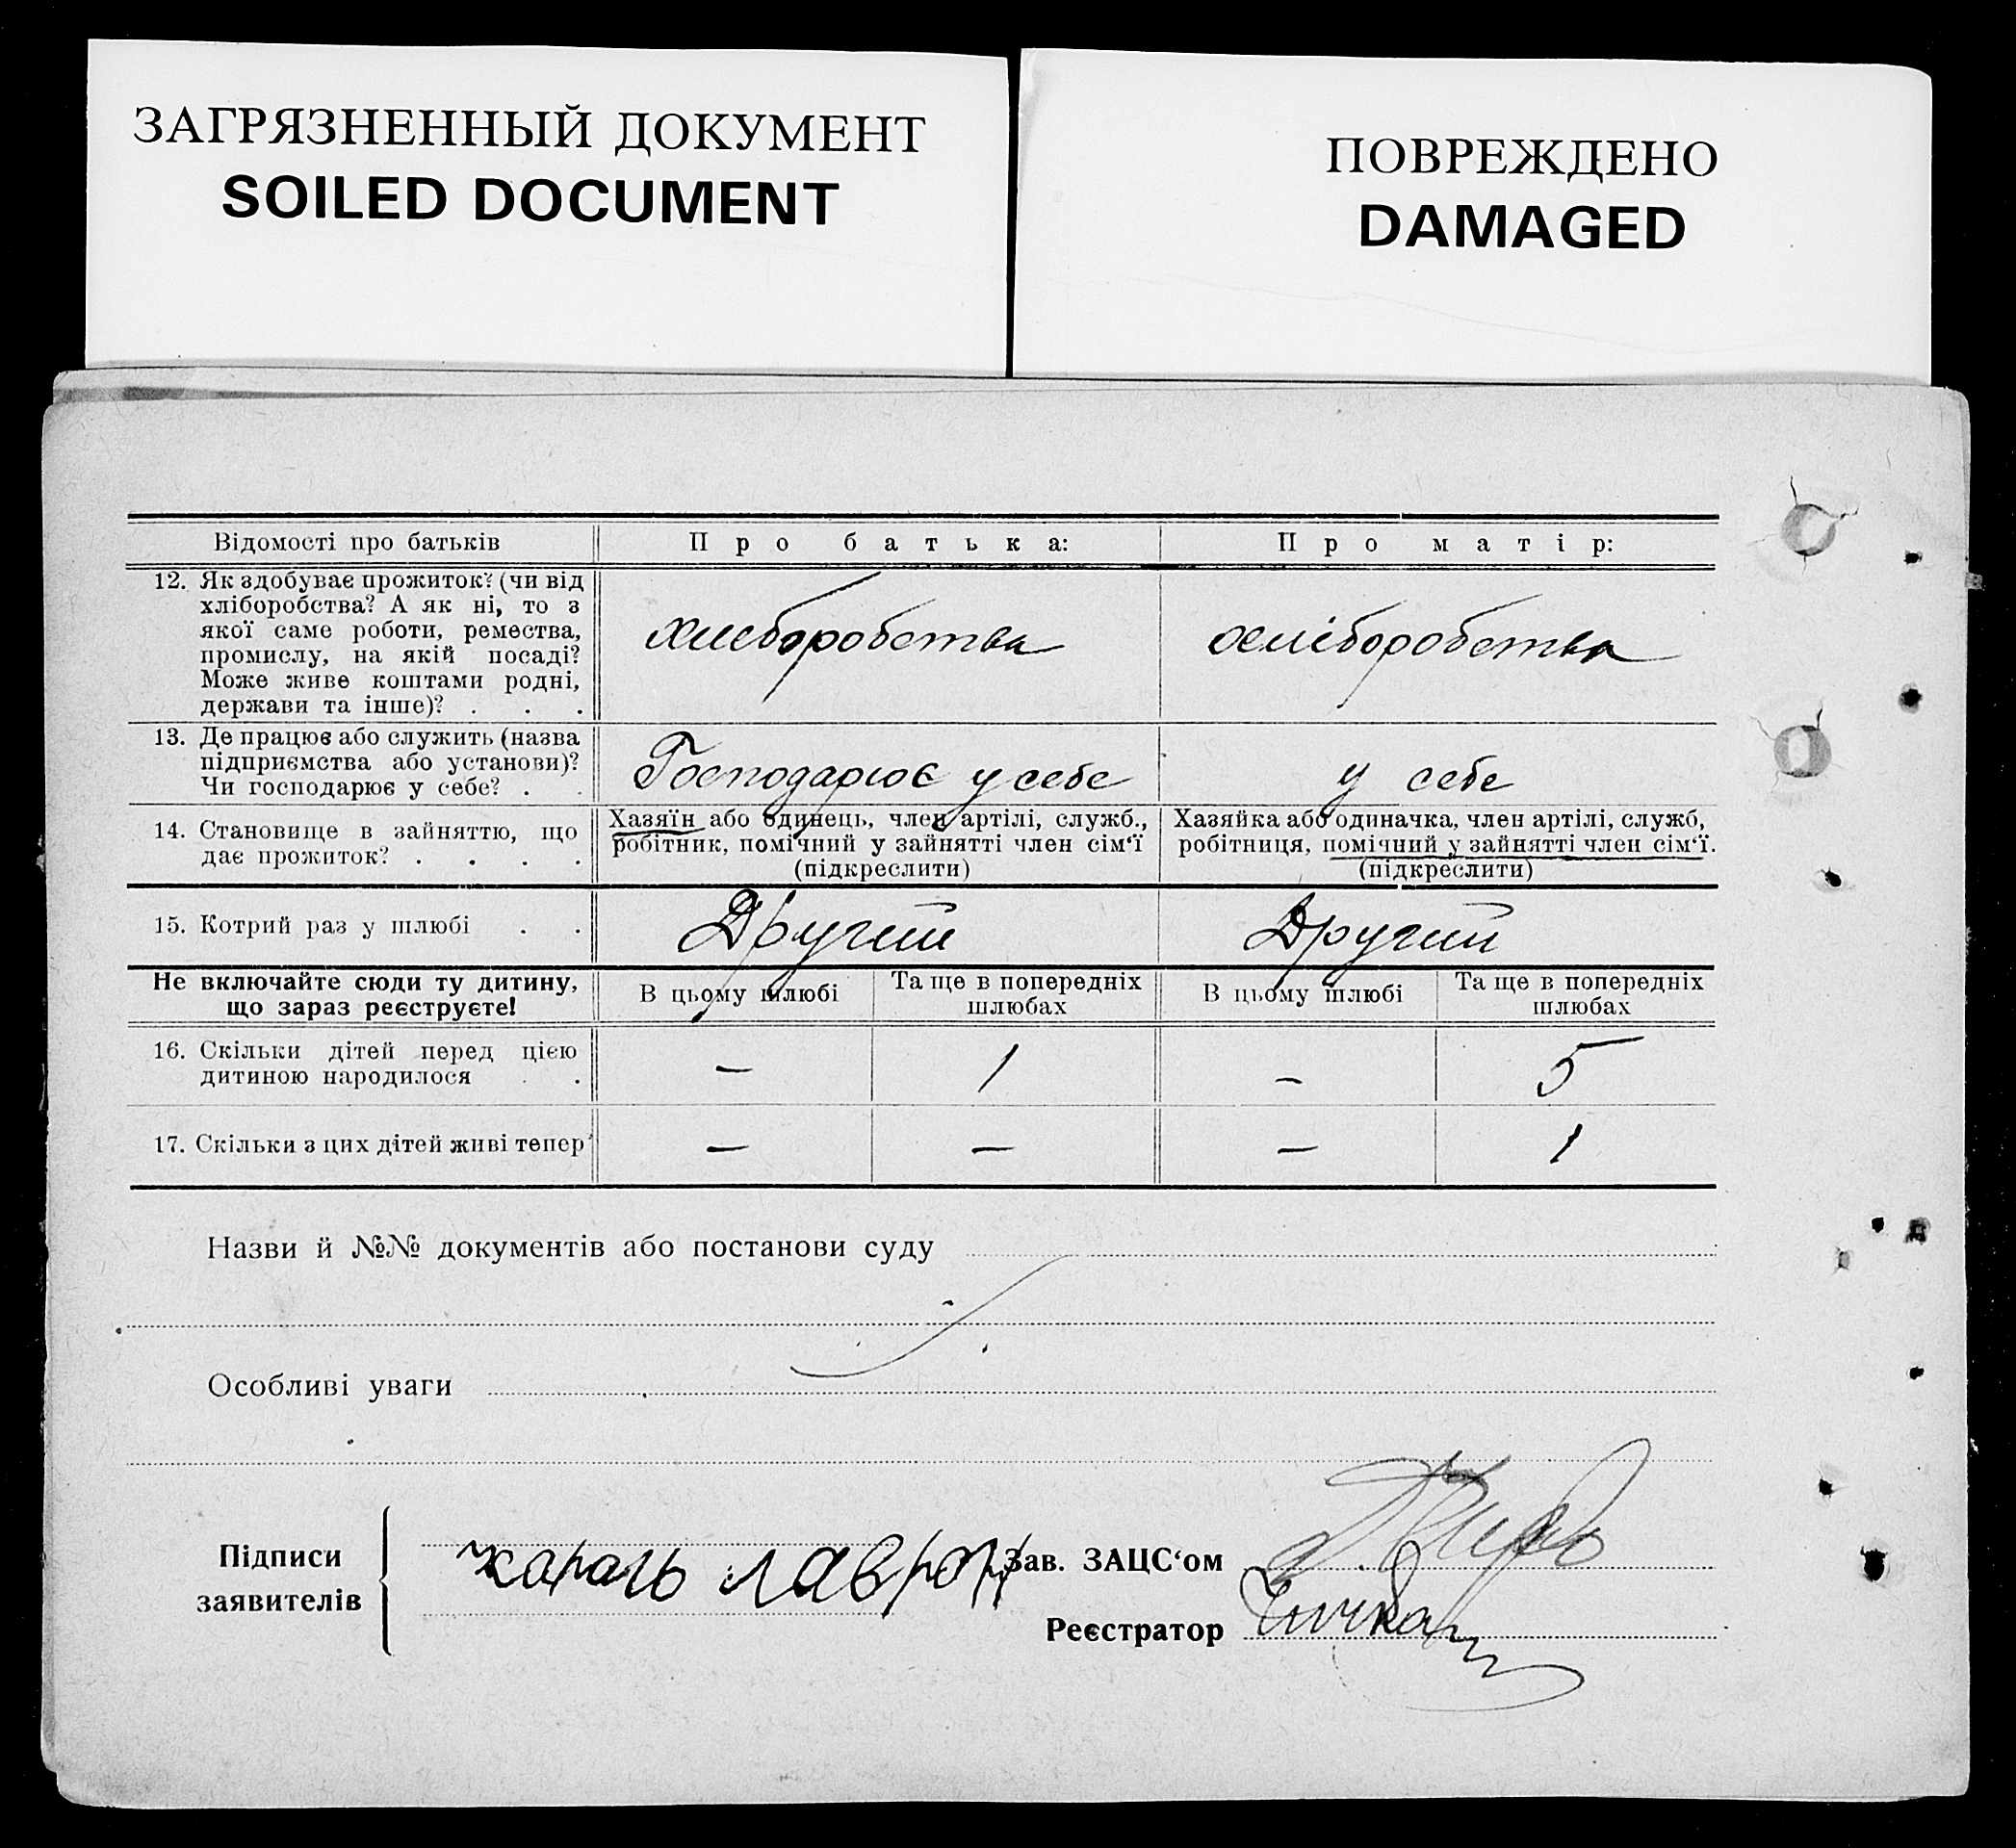 ЗАГРЯЗНЕННЫЙ ДОКУМЕНТ
SOILED DOCUMENT
ПОВРЕЖДЕНО
DAMAGED
Відомості про батьків
Про батька:
Про матір:
12. Як здобуває прожиток? (чи від
хліборобства? А як ні, то з
якої саме роботи, ремества,
промислу, на якій посаді?
Може живе коштами родні,
держави та інше)? . . .
хлеборобства
хліборобства
13. Де працює або служить (назва
підприємства або установи)?
Чи господарює у себе? . .
Господарює у себе
у себе
14. Становище в зайняттю, що
дає прожиток? . . . .
Хазяїн або одинець, член артілі, служб.,
робітник, помічний у зайнятті член сім‘ї
(підкреслити)
Хазяйка або одиначка, член артілі, служб,
робітниця, помічний у зайнятті член сім‘ї.
(підкреслити)
15. Котрий раз у шлюбі . .
Другий
Другий
Не включайте сюди ту дитину,
що зараз реєструєте!
В цьому шлюбі
Та ще в попередніх
шлюбах
В цьому шлюбі
Та ще в попередніх
шлюбах
16. Скільки дітей перед цією
дитиною народилося . .
— 1 — 5
17. Скільки з цих дітей живі тепер
— — — 1
Назви й №№ документів або постанови суду
Особливі уваги
Підписи
заявителів
Зав. ЗАЦС‘ом
Реєстратор